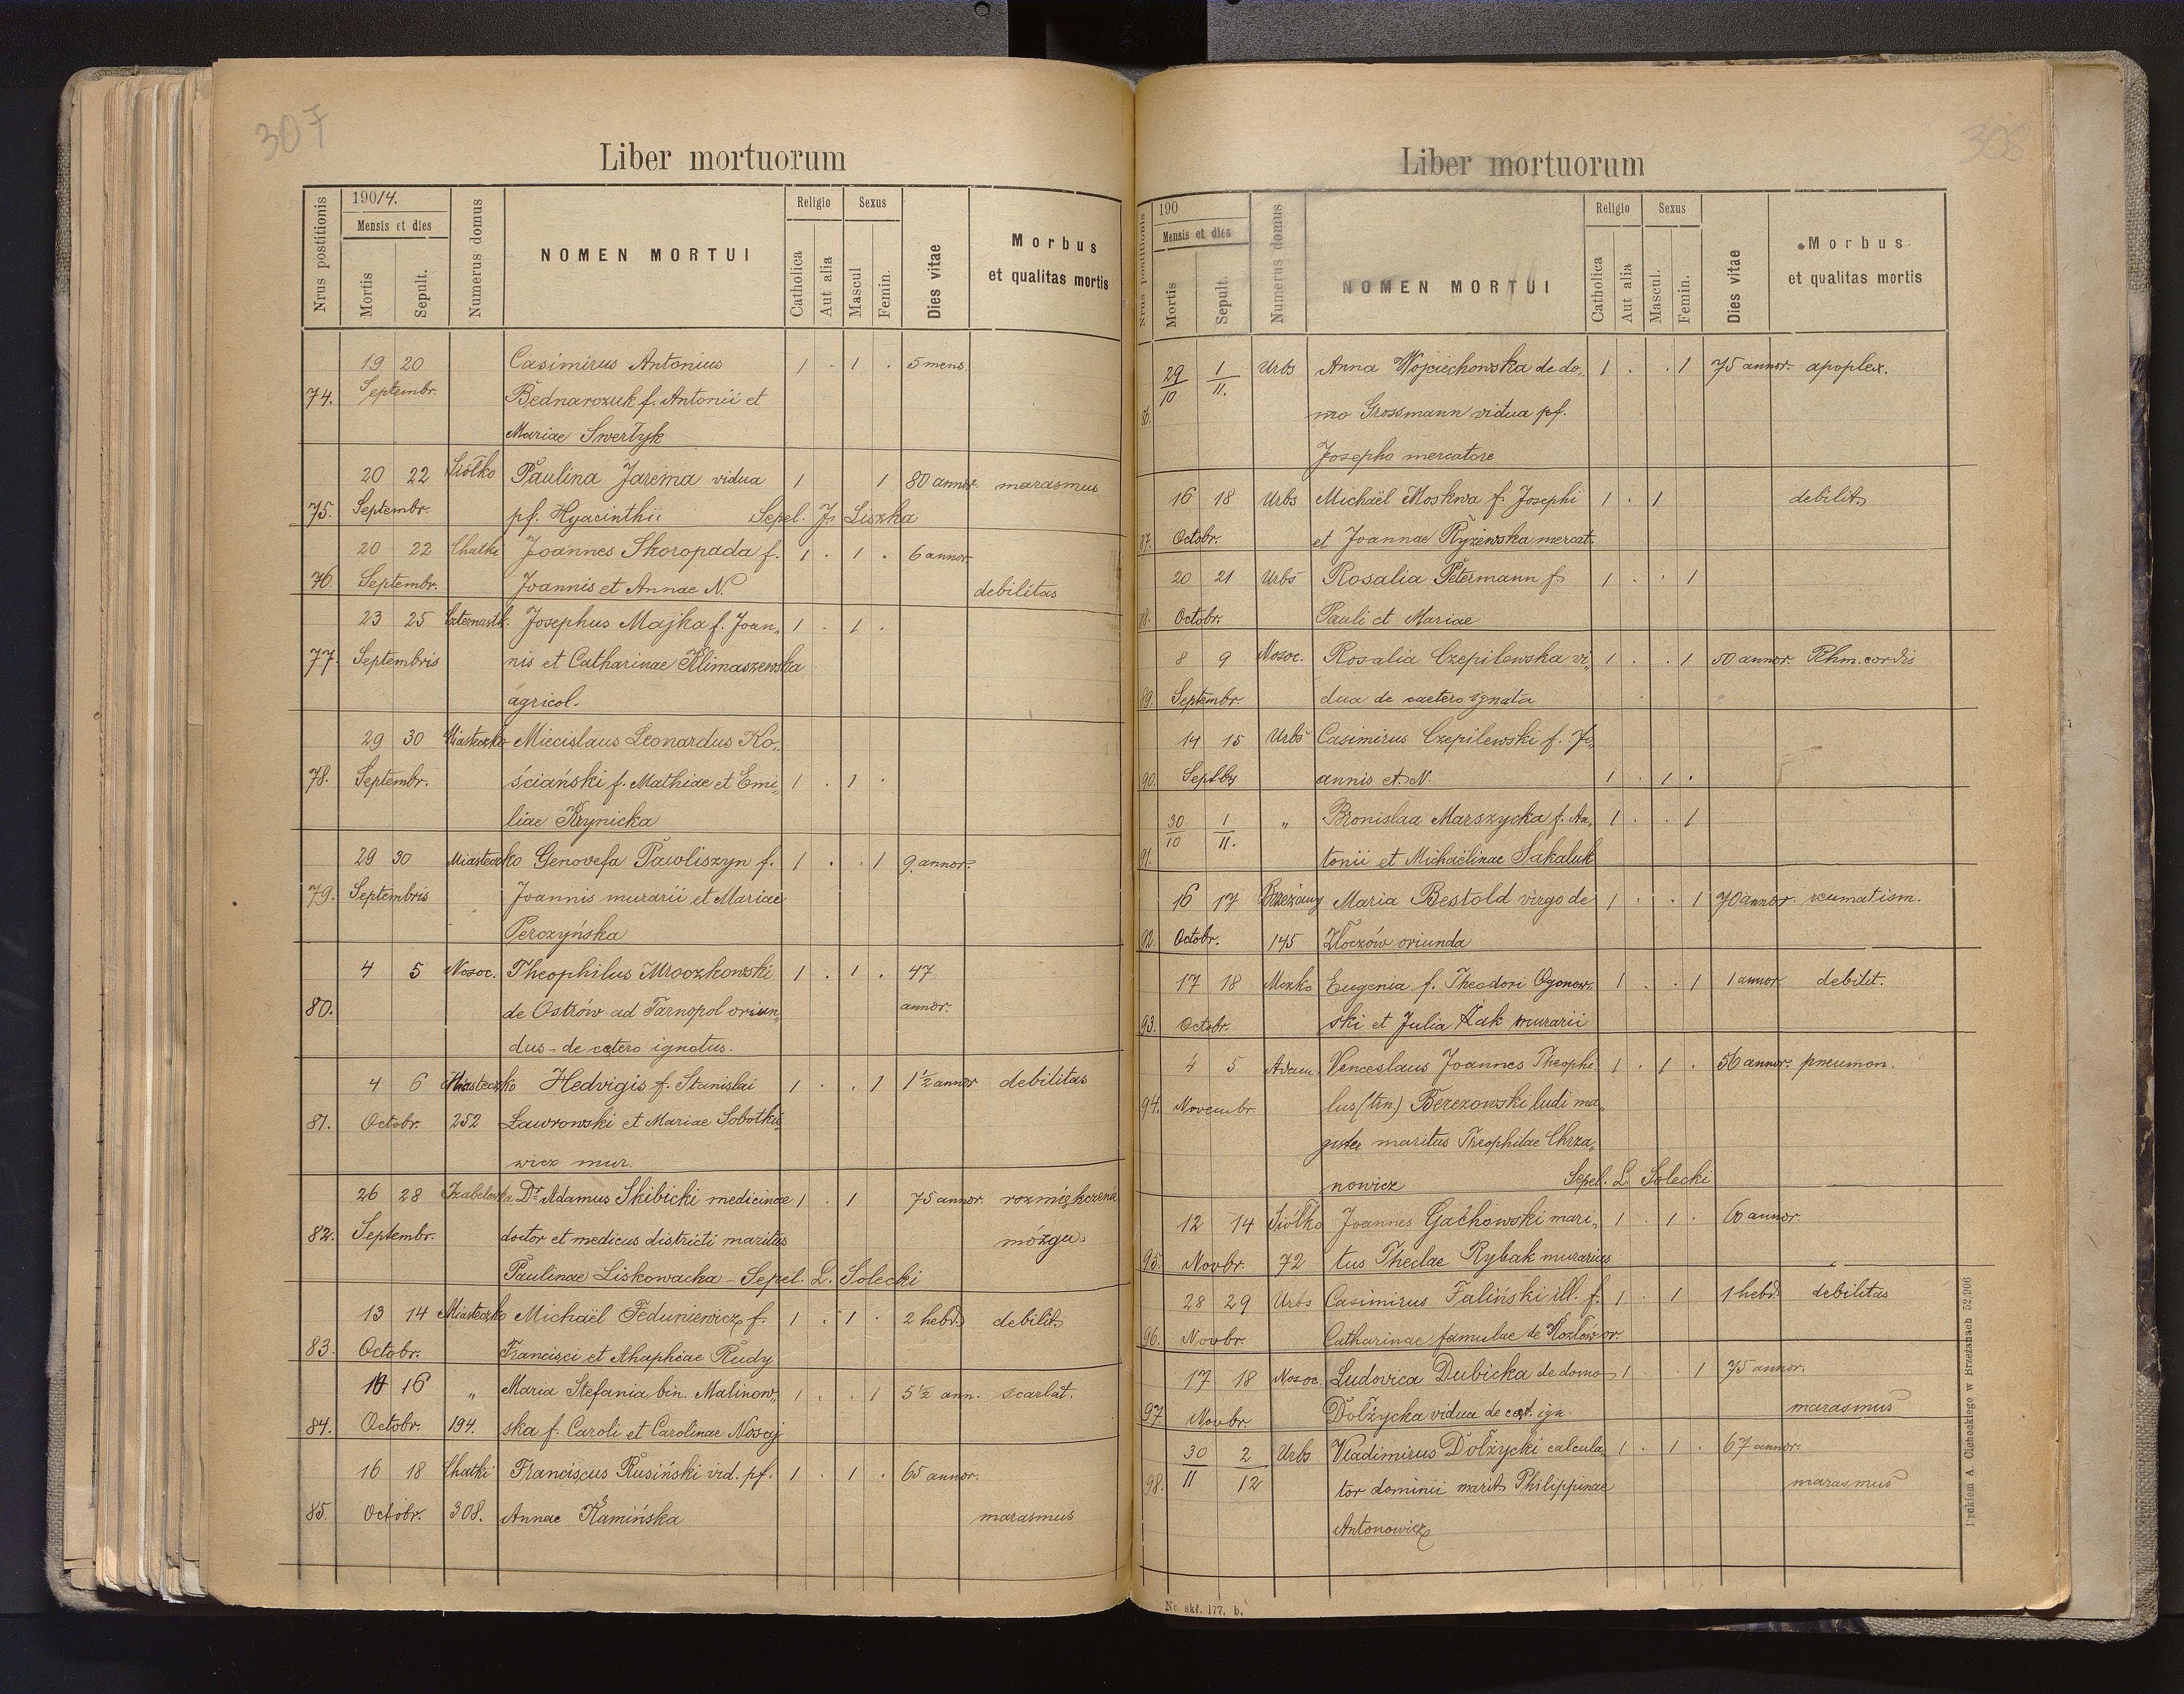 307
Liber mortuorum
Nrus postitionis
1904.
Mensis et dies
Mortis
Sepult.
Numerus domus
NOMEN MORTUI
Religio
Catholica
Aut alia
Sexus
Mascul
Femin.
Dies vitae
Morbus
et qualitas mortis
19 20 Casimirus Antonius 1 . 1 . 5 mens.
74. Septembr. Bednarczuk f. Antonii et
Mariae Swertyk
20 22 Siółko Paulina Jarema vidua 1 1 80 annor. marasmus
75. Septembr. pf. Hyacinthii Sepel. J. Liszka
20 22 Chatki Joannes Skoropada f. 1 . 1 . 6 annor.
76. Septembr. Joannis et Annae N. debilitas
23 25 Czternastk. Josephus Majka f. Joan„ 1 . 1 .
77. Septembris nis et Catharinae Klimaszewska
agricol.
29 30 Miasteczko Miecislaus Leonardus Ko„
78. Septembr. ściański f. Mathiae et Emi„ 1 . 1 .
liae Krynicka
29 30 Miasteczko Genovefa Pawliszyn f. 1 . . 1 9 annor.
79. Septembris Joannis murarii et Mariae
Perczyńska
4 5 Nosoc. Theophilus Mroczkowski 1 . 1 . 47
80. de Ostrów ad Tarnopol oriun„ annor.
dus - de cetero ignotus.
4 6 Miasteczko Hedvigis f. Stanislai 1 . . 1 1 1/2 annor debilitas
81. Octobr. 252 Ławrowski et Mariae Sobotkie„
wicz mur.
26 28 Izabelowka Dr. Adamus Skibicki medicinae 1 . 1 75 annor. rozmiękczenie
82. Septembr. doctor et medicus districti maritus mózgu.
Paulinae Liskowacka - Sepel. L. Solecki
13 14 Miasteczko Michaël Feduniewicz f. 1 . 1 . 2 hebd. debilit.
83. Octobr. Francisci et Ahaphiae Rudy
14 16 „ Maria Stefania bin. Malinow„ 1 . . 1 5 1/2 ann. scarlat.
84. Octobr. 194. ska f. Caroli et Carolinae Nosaj
16 18 Chatki Franciscus Rusiński vid. pf. 1 . 1 . 65 annor.
85. Octobr. 308. Annae Kamińska marasmus
308
Liber mortuorum
Nrus postitionis
190
Mensis et dies
Mortis
Sepult.
Numerus domus
NOMEN MORTUI
Religio
Catholica
Aut alia
Sexus
Mascul.
Femin.
Dies vitae
Morbus
et qualitas mortis
29/10 1/11. Urbs Anna Wojciechowska de do„ 1 . . 1 75 annor. apoplex.
86. mo Grossmann vidua pf.
Josepho mercatore
16 18 Urbs Michaël Moskwa f. Josephi 1 . 1 debilit.
87. Octobr. et Joannae Ryżewska mercat.
20 21 Urbs Rosalia Petermann f. 1 . . 1
88. Octobr. Pauli et Mariae
8 9 Nosoc. Rosalia Czepilewska vi„ 1 . . 1 50 annor. Rhm. cordis
89. Septembr. dua de caetero ignata
14 15 Urbs Casimirus Czepilewski f. Jo„
90. Septbr annis et N. 1 . 1 .
30/10 1/11. „ Bronislaa Marszycka f. An„ 1 . . 1
91. tonii et Michaëlinae Sakaluk
16 17 Brzeżany Maria Bestold virgo de 1 . . 1 70 annor. reumatism.
92. Octobr. 145 Złoczów oriunda
17 18 Mczko Eugenia f. Theodori Ogonow„ 1 . . 1 1 annor. debilit.
93. Octobr. ski et Julia Żak murarii
4 5 Adam. Venceslaus Joannes Theophi„ 1 . 1 . 56 annor. pneumon.
94. Novembr. lus (trn.) Berezowski ludi ma„
gister maritus Theophilae Chrza„
nowicz Sepel. L. Solecki
12 14 Siółko Joannes Gachowski mari„ 1 . 1 . 60 annor.
95. Novbr. 72 tus Theclae Rybak murarius
28 29 Urbs Casimirus Faliński ill. f. 1 . 1 1 hebd. debilitas
96. Novbr. Catharinae famulae de Kozłów or.
17 18 Nosoc. Ludovica Dubicka de domo 1 . . 1 75 annor.
97. Novbr. Dołżycka vidua de caet. ign. marasmus
30 2 Urbs Vladimirus Dołżycki calcula„ 1 . 1 . 67 annor.
98. 11 12 tor dominii marit. Philippinae marasmus
Antonowicz
Nr. skł. 177. b.
Drukiem A. Cichockiego w Brzeżanach 52.906